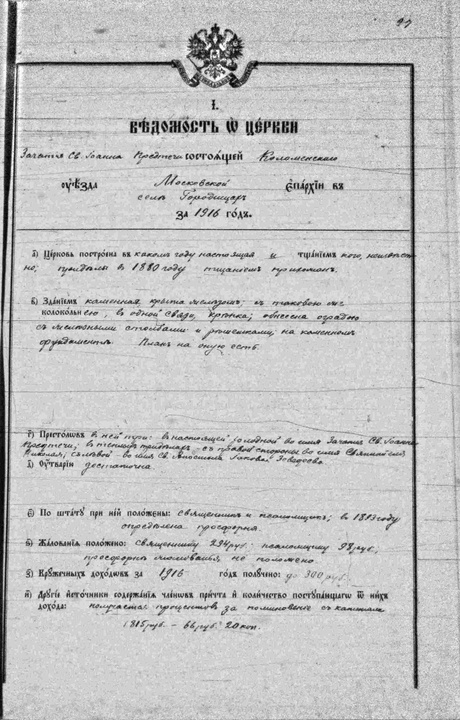 27
І.
ВѢДОМОСТЬ Ѿ ЦЕРКВИ
Зачатія Св. Іоанна Предтечи СОСТОЯЩЕЙ Коломенскаго
ОУѢЗДА Московской ЕПАРХІИ ВЪ
селѣ Городищахъ
ЗА 1916 ГОДЪ.
а) Церковь построена въ какомъ году настоящая и тщаніемъ кого, неизвѣст
но; придѣлы въ 1880 году тщаніемъ прихожан.
в) Зданіемъ каменная крыта желѣзомъ, съ таковою же
колокольнею, въ одной связи, крѣпка; обнесена оградою
съ столбами и рѣшетками, на каменном
фундаментѣ. Планъ на оную есть.
г) Престоловъ в ней три: в настоящей холодной во имя Зачатія Св. Іоанна
Предтечи; в теплых придѣлах с правой стороны во имя Святителя
Николая, с лѣвой во имя Св. Апостола Іакова Зеведеева
д) Оутварію достаточна
є) По штату при ней положены: священник и псаломщик; в 1873 году
опредѣлена просфорня.
ѕ) Жалованія положено: священнику 294 руб. псаломщику 98 руб.,
просфорнѣ жалованья не положено.
з) Кружечныхъ доходовъ за 1916 годъ получено: до 300 руб.
и) Другіе источники содержанія членовъ причта и количество поступающаго ѿ нихъ
дохода: получается процентов за поминовеніе с капитала
1815 руб. – 66 руб. 20 коп.